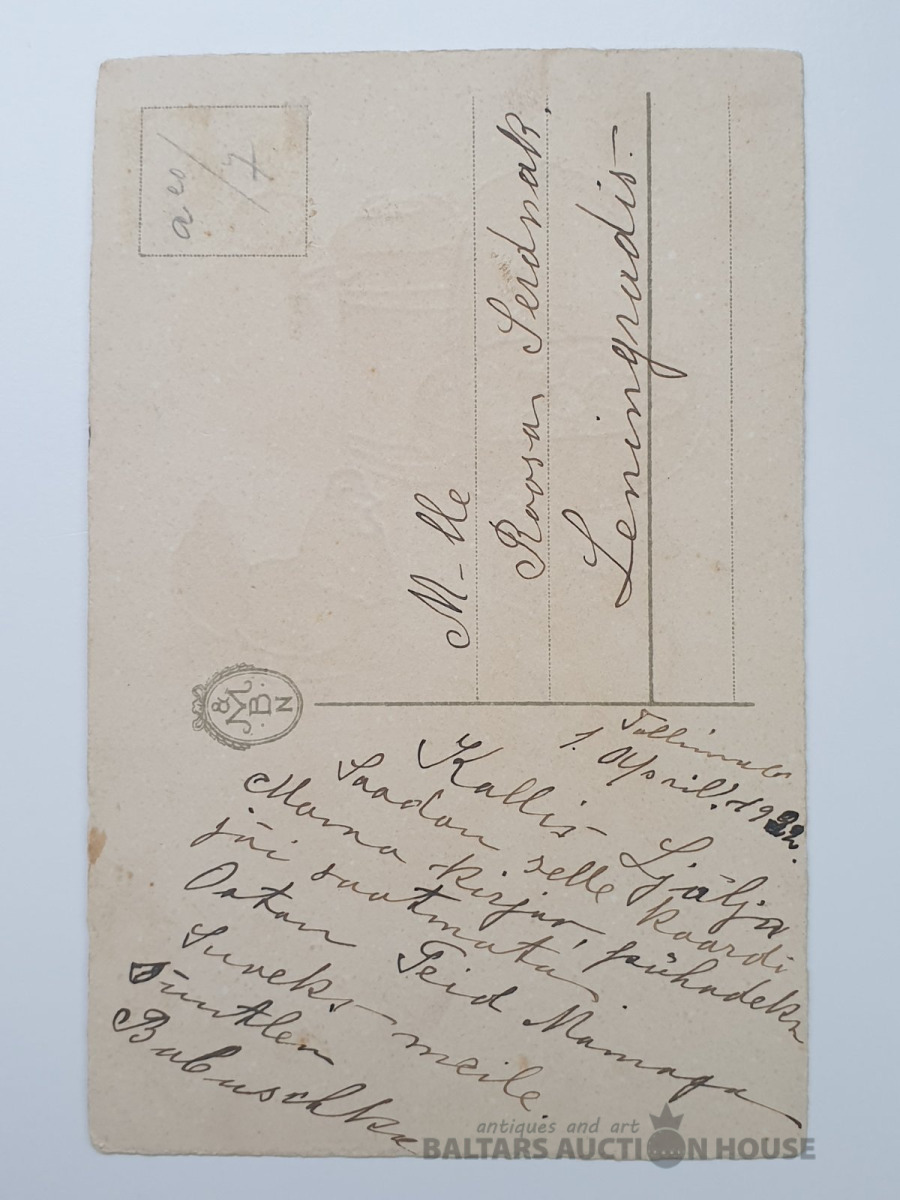 a co / 7
M-lle
Roosa Serdnak.
Leningradis.-
M & B. N
Tallinnas
1. April. 1932.
Kallis Ljälja
Saadan selle kaardi
Mama kirjaa, pühadeks
jäi saatmata
Ootan Teid Mamaga
Suveks meile
Suutlen
Babuschka
antiques and art
BALTARS AUCTION HOUSE